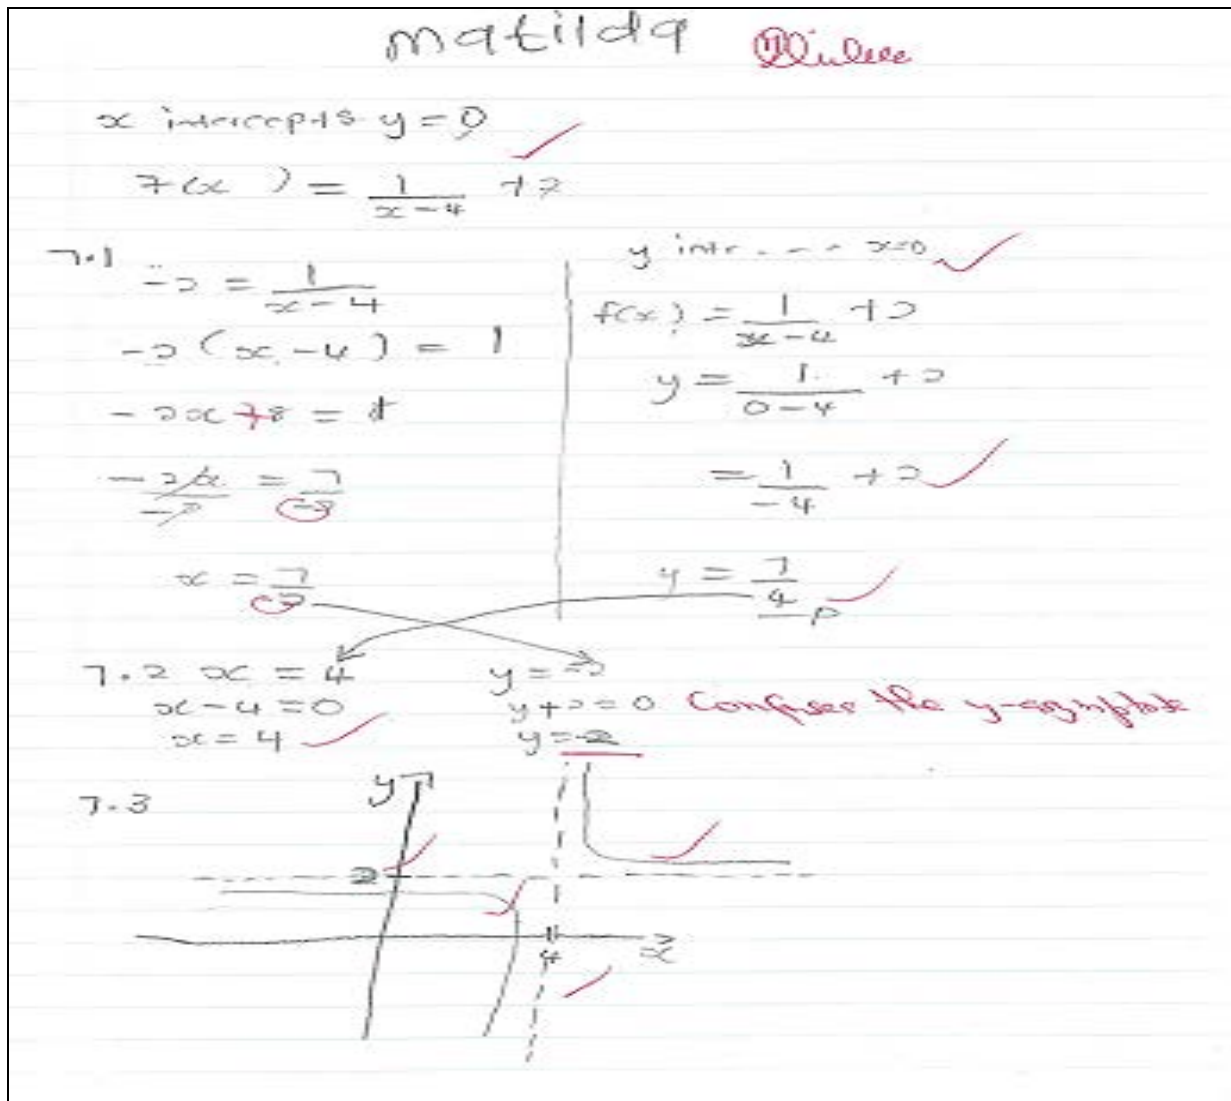 matilda
x intercepts y = 0
f(x) = 1/(x-4) + 2
7.1
-2 = 1/(x-4)
-2(x-4) = 1
-2x+8 = 1
-2x/-2 = 7/-2
x = 7/-2
y inte---- x=0
f(x) = 1/(x-4) + 2
y = 1/(0-4) + 2
= 1/-4 + 2
y = 7/4
7.2 x = 4
x-4=0
x=4
y=-2
y+2=0 Confuses the y-asymptote
y=-2
7.3
y
2
4
x